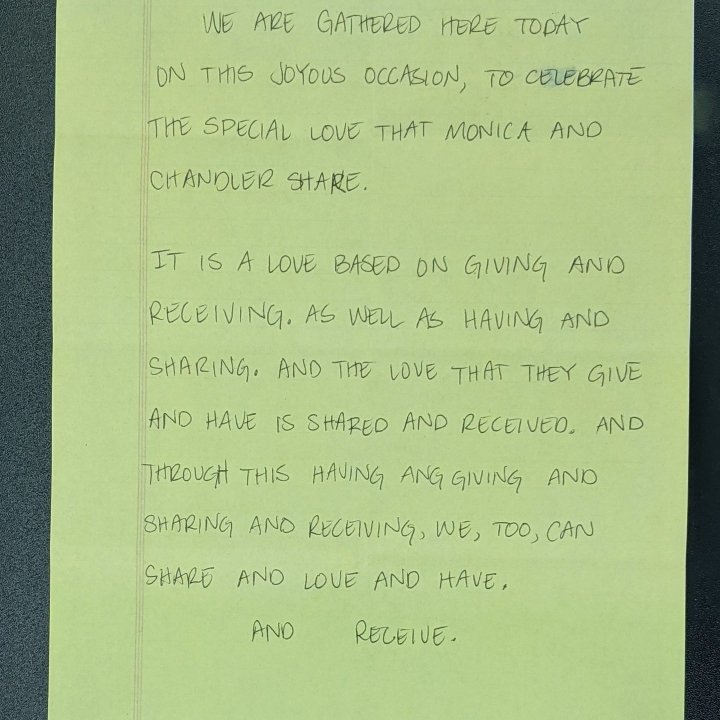 WE ARE GATHERED HERE TODAY
ON THIS JOYOUS OCCASION, TO CELEBRATE
THE SPECIAL LOVE THAT MONICA AND
CHANDLER SHARE.
IT IS A LOVE BASED ON GIVING AND
RECEIVING. AS WELL AS HAVING AND
SHARING. AND THE LOVE THAT THEY GIVE
AND HAVE IS SHARED AND RECEIVED. AND
THROUGH THIS HAVING ANG GIVING AND
SHARING AND RECEIVING, WE, TOO, CAN
SHARE AND LOVE AND HAVE.
AND RECEIVE.